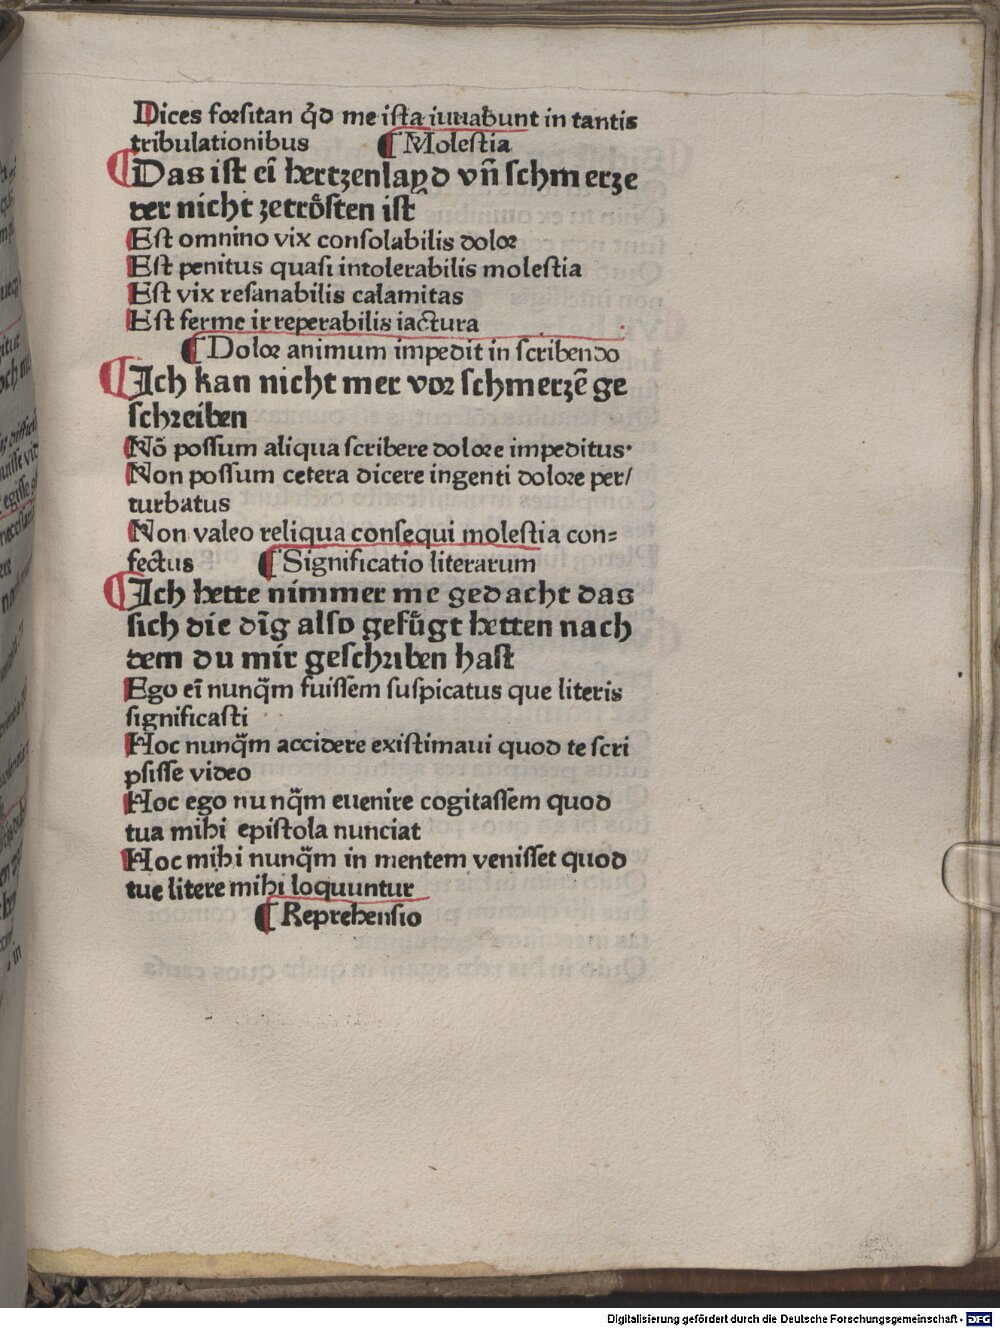 Dices forsitan q̄d me ista iuuabunt in tantis
tribulationibus ¶ Molestia
¶ Das ist ei̅ hertzenlayd vn̅ schmerze
der nicht zetrösten ist
Est omnino vix consolabilis dolor
Est penitus quasi intolerabilis molestia
Est vix resanabilis calamitas
Est ferme irreperabilis iactura
¶ Dolor animum impedit in scribendo
¶ Ich kan nicht mer vor schmerze̅ ge
schreiben
No̅ possum aliqua scribere dolore impeditus·
Non possum cetera dicere ingenti dolore per/
turbatus
Non valeo reliqua consequi molestia con=
fectus ¶ Significatio literarum
¶ Ich hette nimmer me gedacht das
sich die di̅g also gefu̇gt hetten nach
dem du mir geschriben hast
Ego ei̅ nunq̄m fuissem suspicatus que literis
significasti
Hoc nunq̄m accidere existimaui quod te scri
psisse video
Hoc ego nunq̄m euenire cogitassem quod
tua mihi epistola nunciat
Hoc mihi nunq̄m in mentem venisset quod
tue litere mihi loquuntur
¶ Reprehensio
Digitalisierung gefördert durch die Deutsche Forschungsgemeinschaft - DFG